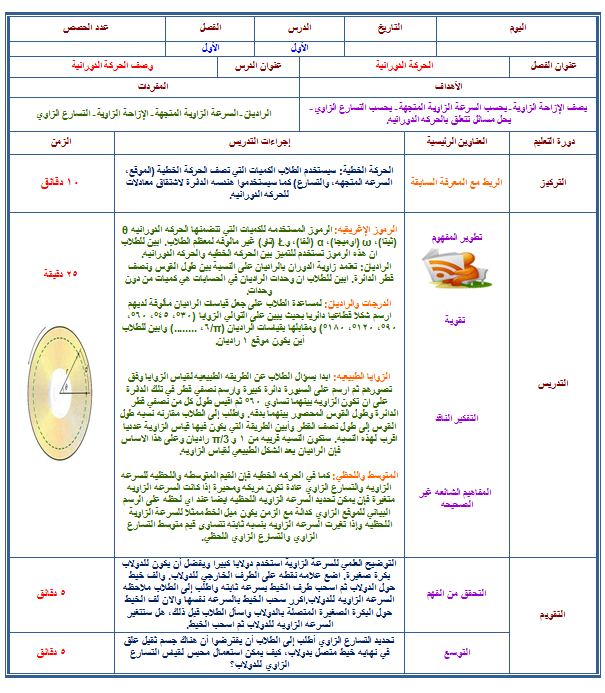 اليوم التاريخ الدرس الفصل عدد الحصص
الأول الأول
عنوان الفصل الحركة الدورانية عنوان الدرس وصف الحركة الدورانية
الأهداف المفردات
يصف الإزاحة الزاوية - يحسب السرعة الزاوية المتجهة - يحسب التسارع الزاوي -
يحل مسائل تتعلق بالحركه الدورانيه.
الراديان - السرعة الزاوية المتجهة - الإزاحة الزاوية - التسارع الزاوي
دورة التعليم العناوين الرئيسية إجراءات التدريس الزمن
التركيز الربط مع المعرفة السابقة
الحركة الخطية: سيستخدم الطلاب الكميات التي تصف الحركة الخطية (الموقع،
السرعه المتجهه، والتسارع) كما سيستخدموا هندسه الدائرة لاشتقاق معادلات
للحركه الدورانيه.
١٠ دقائق
التدريس
تطوير المفهوم
الرموز الإغريقيه: الرموز المستخدمه للكميات التي تتضمنها الحركه الدورانيه θ
(ثيتا)، ω (اوميجا)، α (الفا)، و (تاو) غير مالوفه لمعظم الطلاب. ابين للطلاب
ان هذه الرموز تستخدم للتميز بين الحركه الخطيه والحركه الدورانيه.
الراديان: تعتمد زاوية الدوران بالراديان على النسبة بين طول القوس ونصف
قطر الدائرة. ابين للطلاب ان وحدات الراديان في الحسابات هي كميات من دون
وحدات.
٢٥ دقيقة
تقوية
الدرجات والراديان: لمساعدة الطلاب على جعل قياسات الراديان مألوفة لديهم
ارسم شكلا قطاعيا دائريا بحيث يبين على التوالي الزوايا (٣٠°، ٤٥°، ٦٠°،
٩٠°، ١٢٠°، ١٨٠°) ومقابلها بقياسات الراديان (π/٦، ........) وابين للطلاب
أين يكون موقع ١ راديان.
التفكير الناقد
الزوايا الطبيعيه: ابدا بسؤال الطلاب عن الطريقه الطبيعيه لقياس الزوايا وفق
تصورهم ثم ارسم على السبورة دائرة كبيرة وارسم نصفي قطر في تلك الدائرة
على ان تكون الزاويه بينهما تساوي ٦٠° ثم اقيس طول كل من نصفي قطر
الدائرة وطول القوس المحصور بينهما بدقه. وأطلب إلى الطلاب مقارنه نسبه طول
القوس إلى طول نصف القطر وأبين الطريقة التي يكون فيها قياس الزاوية عدديا
اقرب لهذه النسبه. ستكون النسبه قريبه من ١ و π/3 راديان وعلى هذا الاساس
فإن الراديان يعد الشكل الطبيعي لقياس الزاويه.
المفاهيم الشائعه غير
الصحيحه
المتوسط واللحظي: كما في الحركه الخطيه فإن القيم المتوسطه واللحظيه للسرعه
الزاويه والتسارع الزاوي عادة تكون مربكه ومحيرة إذا كانت السرعه الزاويه
متغيرة فإن يمكن تحديد السرعه الزاويه اللحظيه ايضا عند اي لحظه على الرسم
البياني للموقع الزاوي كدالة مع الزمن يكون ميل الخط ممثلا للسرعة الزاوية
اللحظيه وإذا تغيرت السرعه الزاويه بنسبه ثابته تتساوى قيم متوسط التسارع
الزاوي والتسارع الزاوي اللحظي.
التقويم
التحقق من الفهم
التوضيح العلمي للسرعة الزاويه استخدم دولابا كبيرا ويفضل أن يكون للدولاب
بكرة صغيرة. اضع علامه نقطه على الطرف الخارجي للدولاب. والف خيط
حول الدولاب ثم اسحب طرف الخيط بسرعه ثابته وأطلب إلى الطلاب ملاحظه
السرعه الزاويه للدولاب. اكرر سحب الخيط بالسرعه نفسها والان لف الخيط
حول البكرة الصغيرة المتصلة بالدولاب واسأل الطلاب قبل ذلك، هل ستتغير
السرعه الزاويه للدولاب ثم اسحب الخيط.
٥ دقائق
التوسع
تحديد التسارع الزاوي أطلب إلى الطلاب أن يفترضوا أن هناك جسم ثقيل علق
في نهايه خيط متصل بدولاب، كيف يمكن استعمال محبس لقيض التسارع
الزاوي للدولاب؟
٥ دقائق